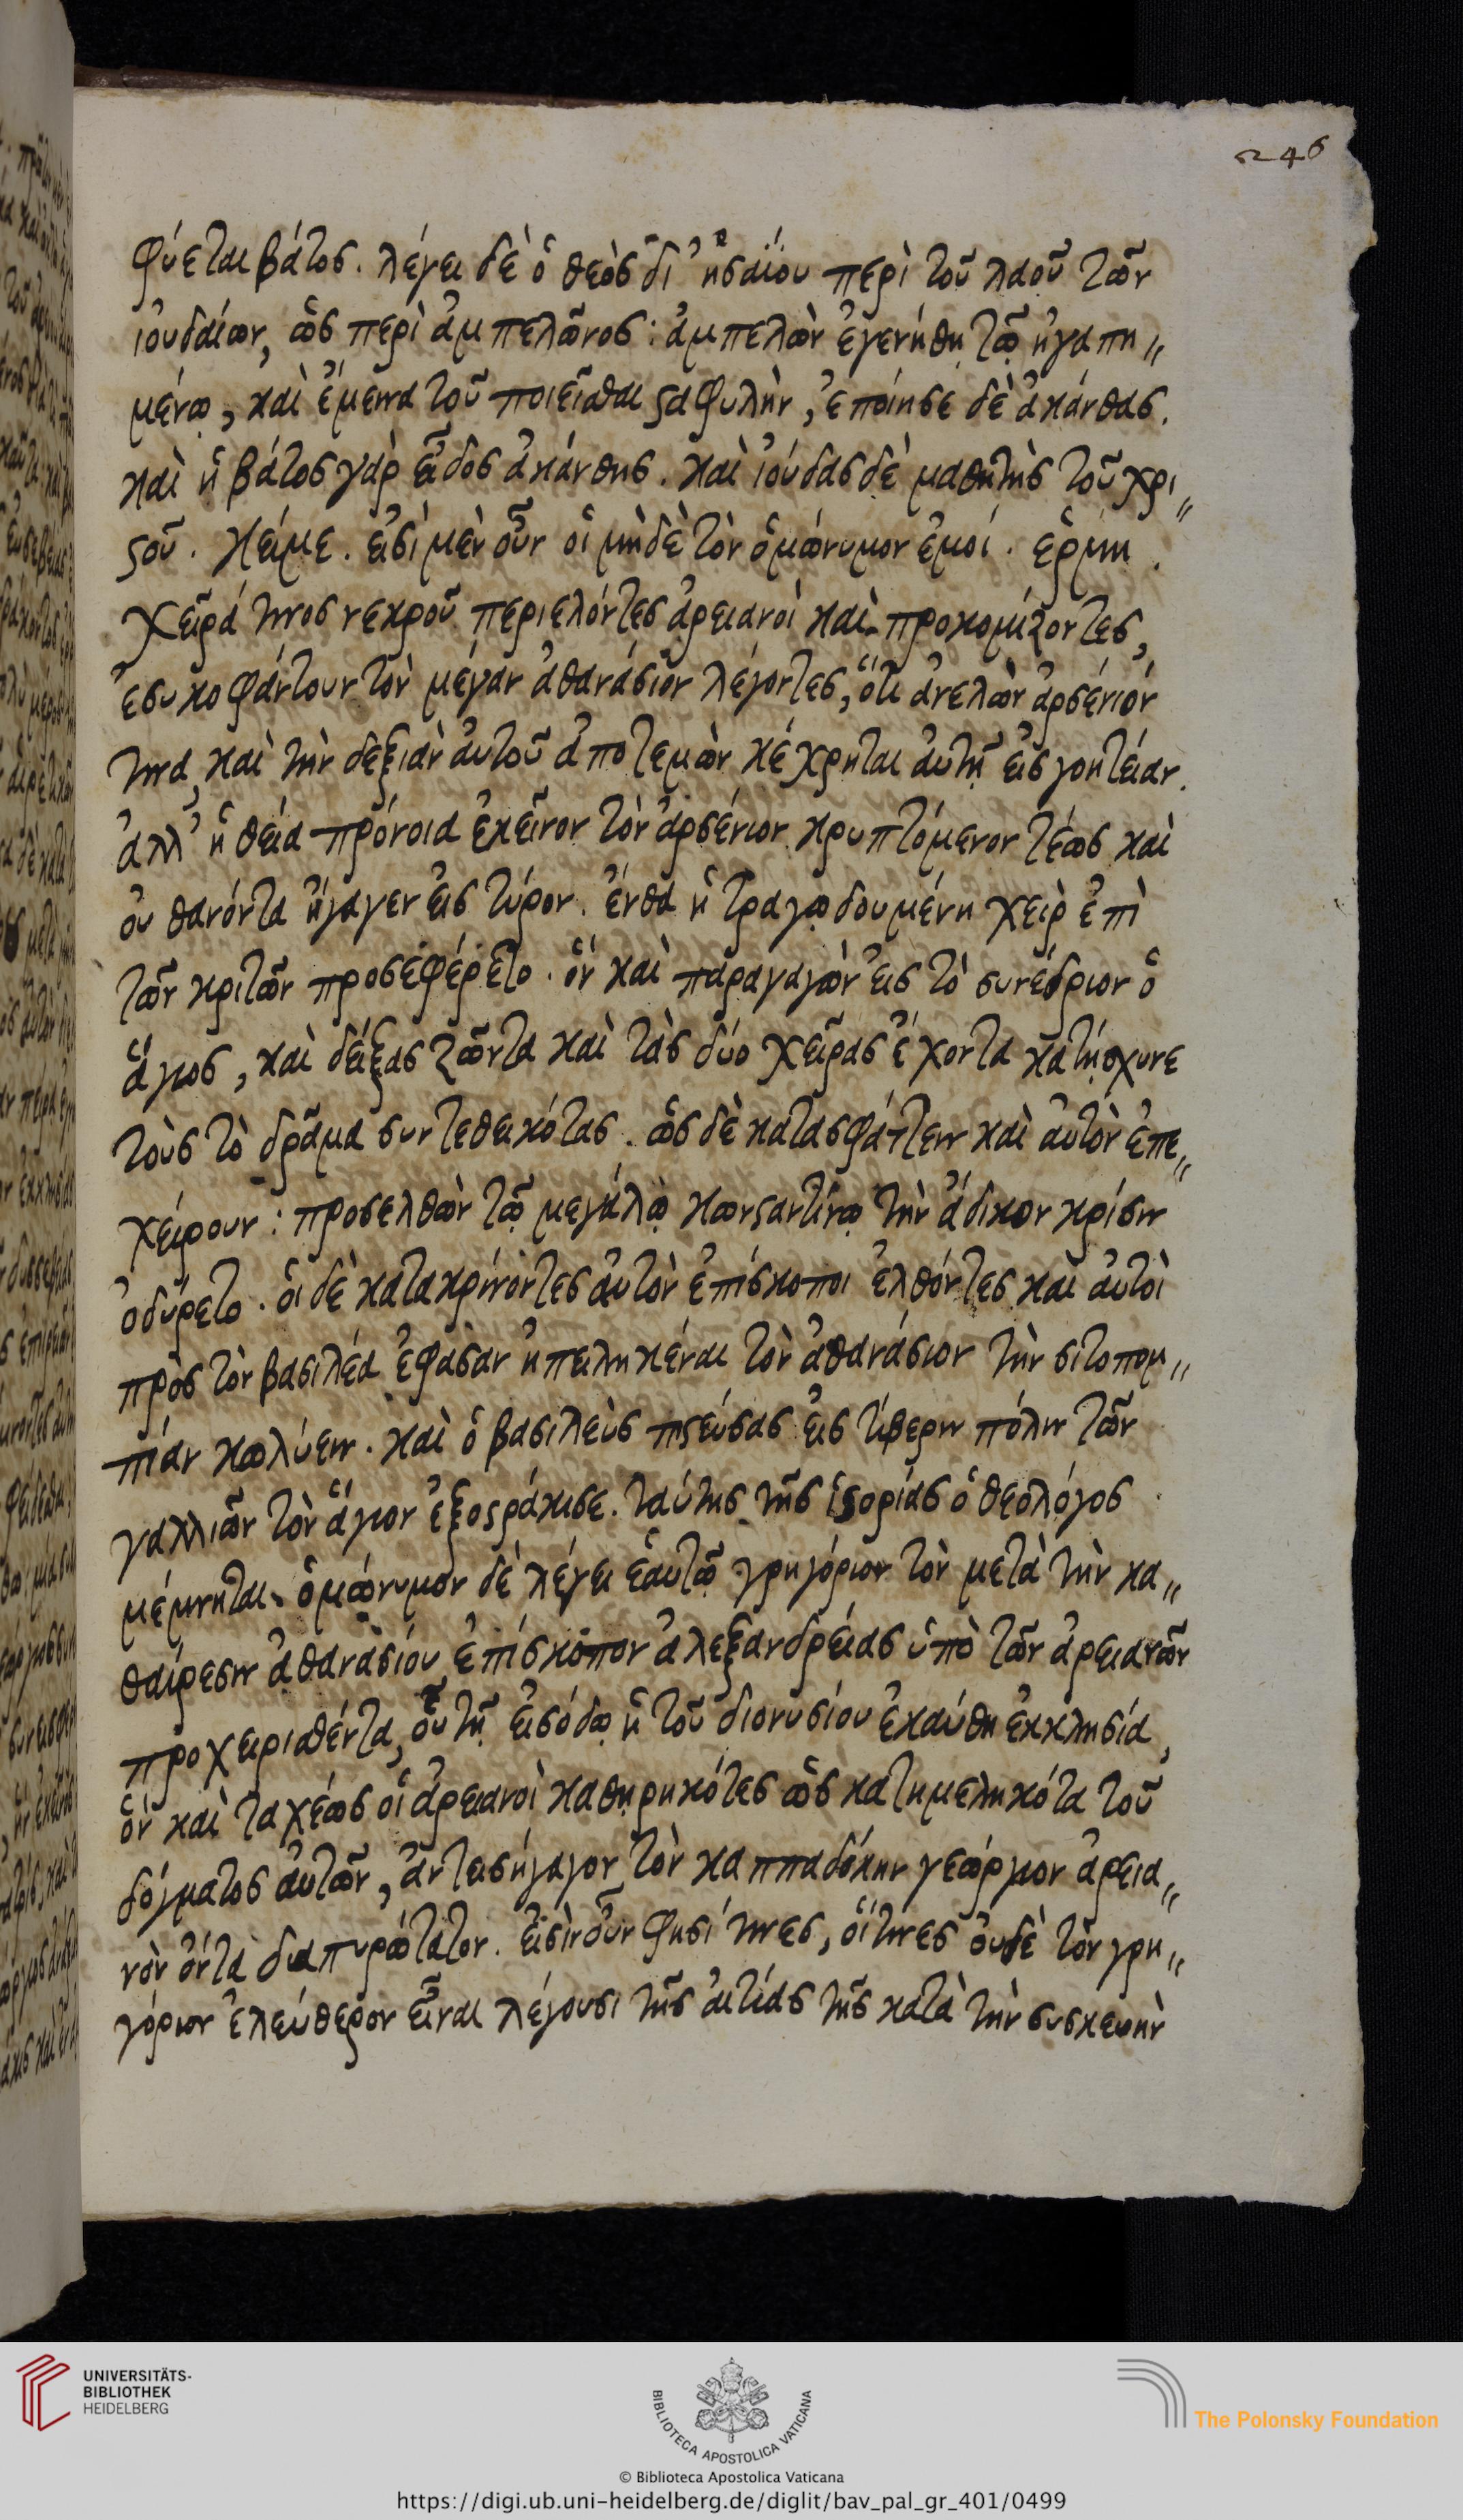 246
φύεται βάτος. λέγει δὲ ὁ θεὸς δι' ἠσαΐου περὶ τοῦ λαοῦ τῶν
ἰουδαίων, ὡς περὶ ἀμπελῶνος: ἀμπελὼν ἐγενήθη τῷ ἠγαπη〃
μένῳ, καὶ ἔμεινα τοῦ ποιεῖσθαι ϛαφυλὴν, ἐποίησε δὲ ἀκάνθας.
καὶ ἡ βάτος γὰρ εἶδος ἀκάνθης. καὶ ἰούδας δὲ μαθητὴς τοῦ χρι〃
ϛοῦ. κείμε. εἰσὶ μὲν οὖν οἱ μὴδὲ τὸν ὁμώνυμον ἐμοί. ἑρμη.
χεῖρά τινος νεκροῦ περιελόντες ἀρειανοὶ καὶ προκομίζοντες,
ἐσυκοφάντουν τὸν μέγαν ἀθανάσιον λέγοντες, ὅτι ἀνελὼν ἀρσένιόν
τινα, καὶ τὴν δεξιὰν αὐτοῦ ἀποτεμὼν κέχρηται αὐτῇ εἰς γοητείαν.
ἀλλ' ἡ θεία πρόνοια ἐκεῖνον τὸν ἀρσένιον κρυπτόμενον τέως καὶ
οὐ θανόντα ἤγαγεν εἰς τύρον. ἔνθα ἡ τραγῳδουμένη χεὶρ ἐπὶ
τῶν κριτῶν προσεφέρετο. ὃν καὶ παραγαγὼν εἰς τὸ συνέδριον ὁ
ἅγιος, καὶ δείξας ζῶντα καὶ τὰς δύο χεῖρας ἔχοντα κατῄσχυνε
τοὺς τὸ δρᾶμα συντεθεικότας. ὡς δὲ κατασφάττειν καὶ αὐτὸν ἐπε〃
χείρουν: προσελθὼν τῷ μεγάλῳ κωνϛαντίνῳ τὴν ἄδικον κρίσιν
ὀδύρετο. οἱ δὲ κατακρίνοντες αὐτὸν ἐπίσκοποι ἐλθόντες καὶ αὐτοὶ
πρὸς τὸν βασιλέα ἔφασαν ἠπειληκέναι τὸν ἀθανάσιον τὴν σιτοπομ〃
πίαν κωλύειν. καὶ ὁ βασιλεὺς πιϛεύσας εἰς τίβεριν πόλιν τῶν
γαλλιῶν τὸν ἅγιον ἐξοϛράκισε. ταύτης τῆς ἱϛορίας ὁ θεολόγος
μέμνηται. ὁμώνυμον δὲ λέγει ἑαυτῷ γρηγόριον τὸν μετὰ τὴν κα〃
θαίρεσιν ἀθανασίου ἐπίσκοπον ἀλεξανδρείας ὑπὸ τῶν ἀρειανῶν
προχειρισθέντα, οὗ τῇ εἰσόδῳ ἡ τοῦ διονυσίου ἐκαύθη ἐκκλησία,
ὃν καὶ ταχέως οἱ ἀρειανοὶ καθῃρηκότες ὡς κατημεληκότα τοῦ
δόγματος αὐτῶν, ἀντεισήγαγον τὸν καππαδόκην γεώργιον ἀρεια〃
νὸν ὄντα διαπυρώτατον. εἰσὶν οὖν φησί τινες, οἵτινες οὐδὲ τὸν γρη〃
γόριον ἐλεύθερον εἶναι λέγουσι τῆς αἰτίας τῆς κατὰ τὴν συσκευὴν
UNIVERSITÄTS-
BIBLIOTHEK
HEIDELBERG
BIBLIOTECA APOSTOLICA VATICANA
The Polonsky Foundation
© Biblioteca Apostolica Vaticana
https://digi.ub.uni-heidelberg.de/diglit/bav_pal_gr_401/0499